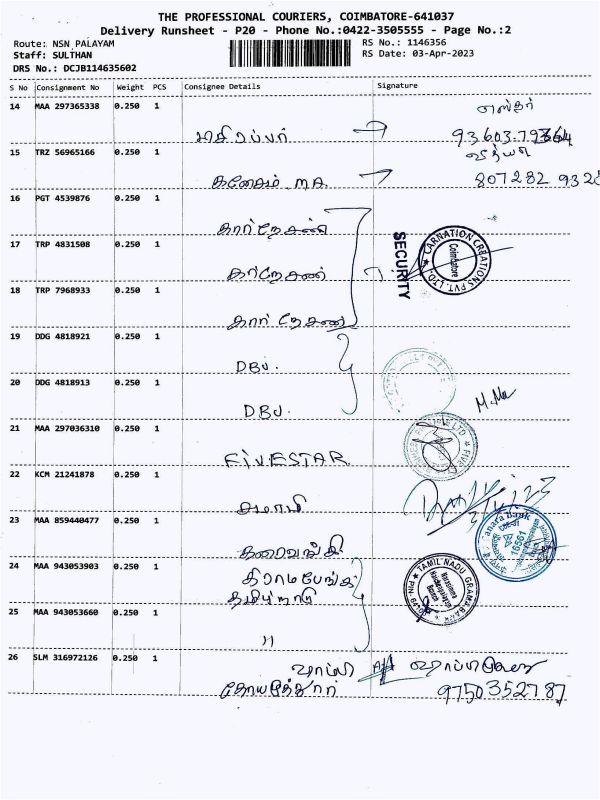 THE PROFESSIONAL COURIERS, COIMBATORE-641037
Delivery Runsheet - P20 - Phone No.:0422-3505555 - Page No.:2
Route: NSN PALAYAM
Staff: SULTHAN
DRS No.: DCJB114635602
RS No.: 1146356
RS Date: 03-Apr-2023
S No Consignment No Weight PCS Consignee Details Signature
14 MAA 297365338 0.250 1
எஸ்தர்
15 TRZ 56965166 0.250 1
வித்யா
கணேசம் M.A.
16 PGT 4539876 0.250 1
கார்நேசன்
17 TRP 4831508 0.250 1
கார்நேசன்
SECURITY
CARNATION CREATIONS PVT. LTD.
Coimbatore
18 TRP 7968933 0.250 1
கார்நேசன்
19 DDG 4818921 0.250 1
DBU.
20 DDG 4818913 0.250 1
DBU.
21 MAA 297036310 0.250 1
FIVESTAR
22 KCM 21241878 0.250 1
23 MAA 859440477 0.250 1
கனராவங்கி
Canara Bank
16561
24 MAA 943053903 0.250 1
கிராமபேங்க்
தமிழ்நாடு
TAMIL NADU GRAMA BANK
25 MAA 943053660 0.250 1
"
26 SLM 316972126 0.250 1
9750352787